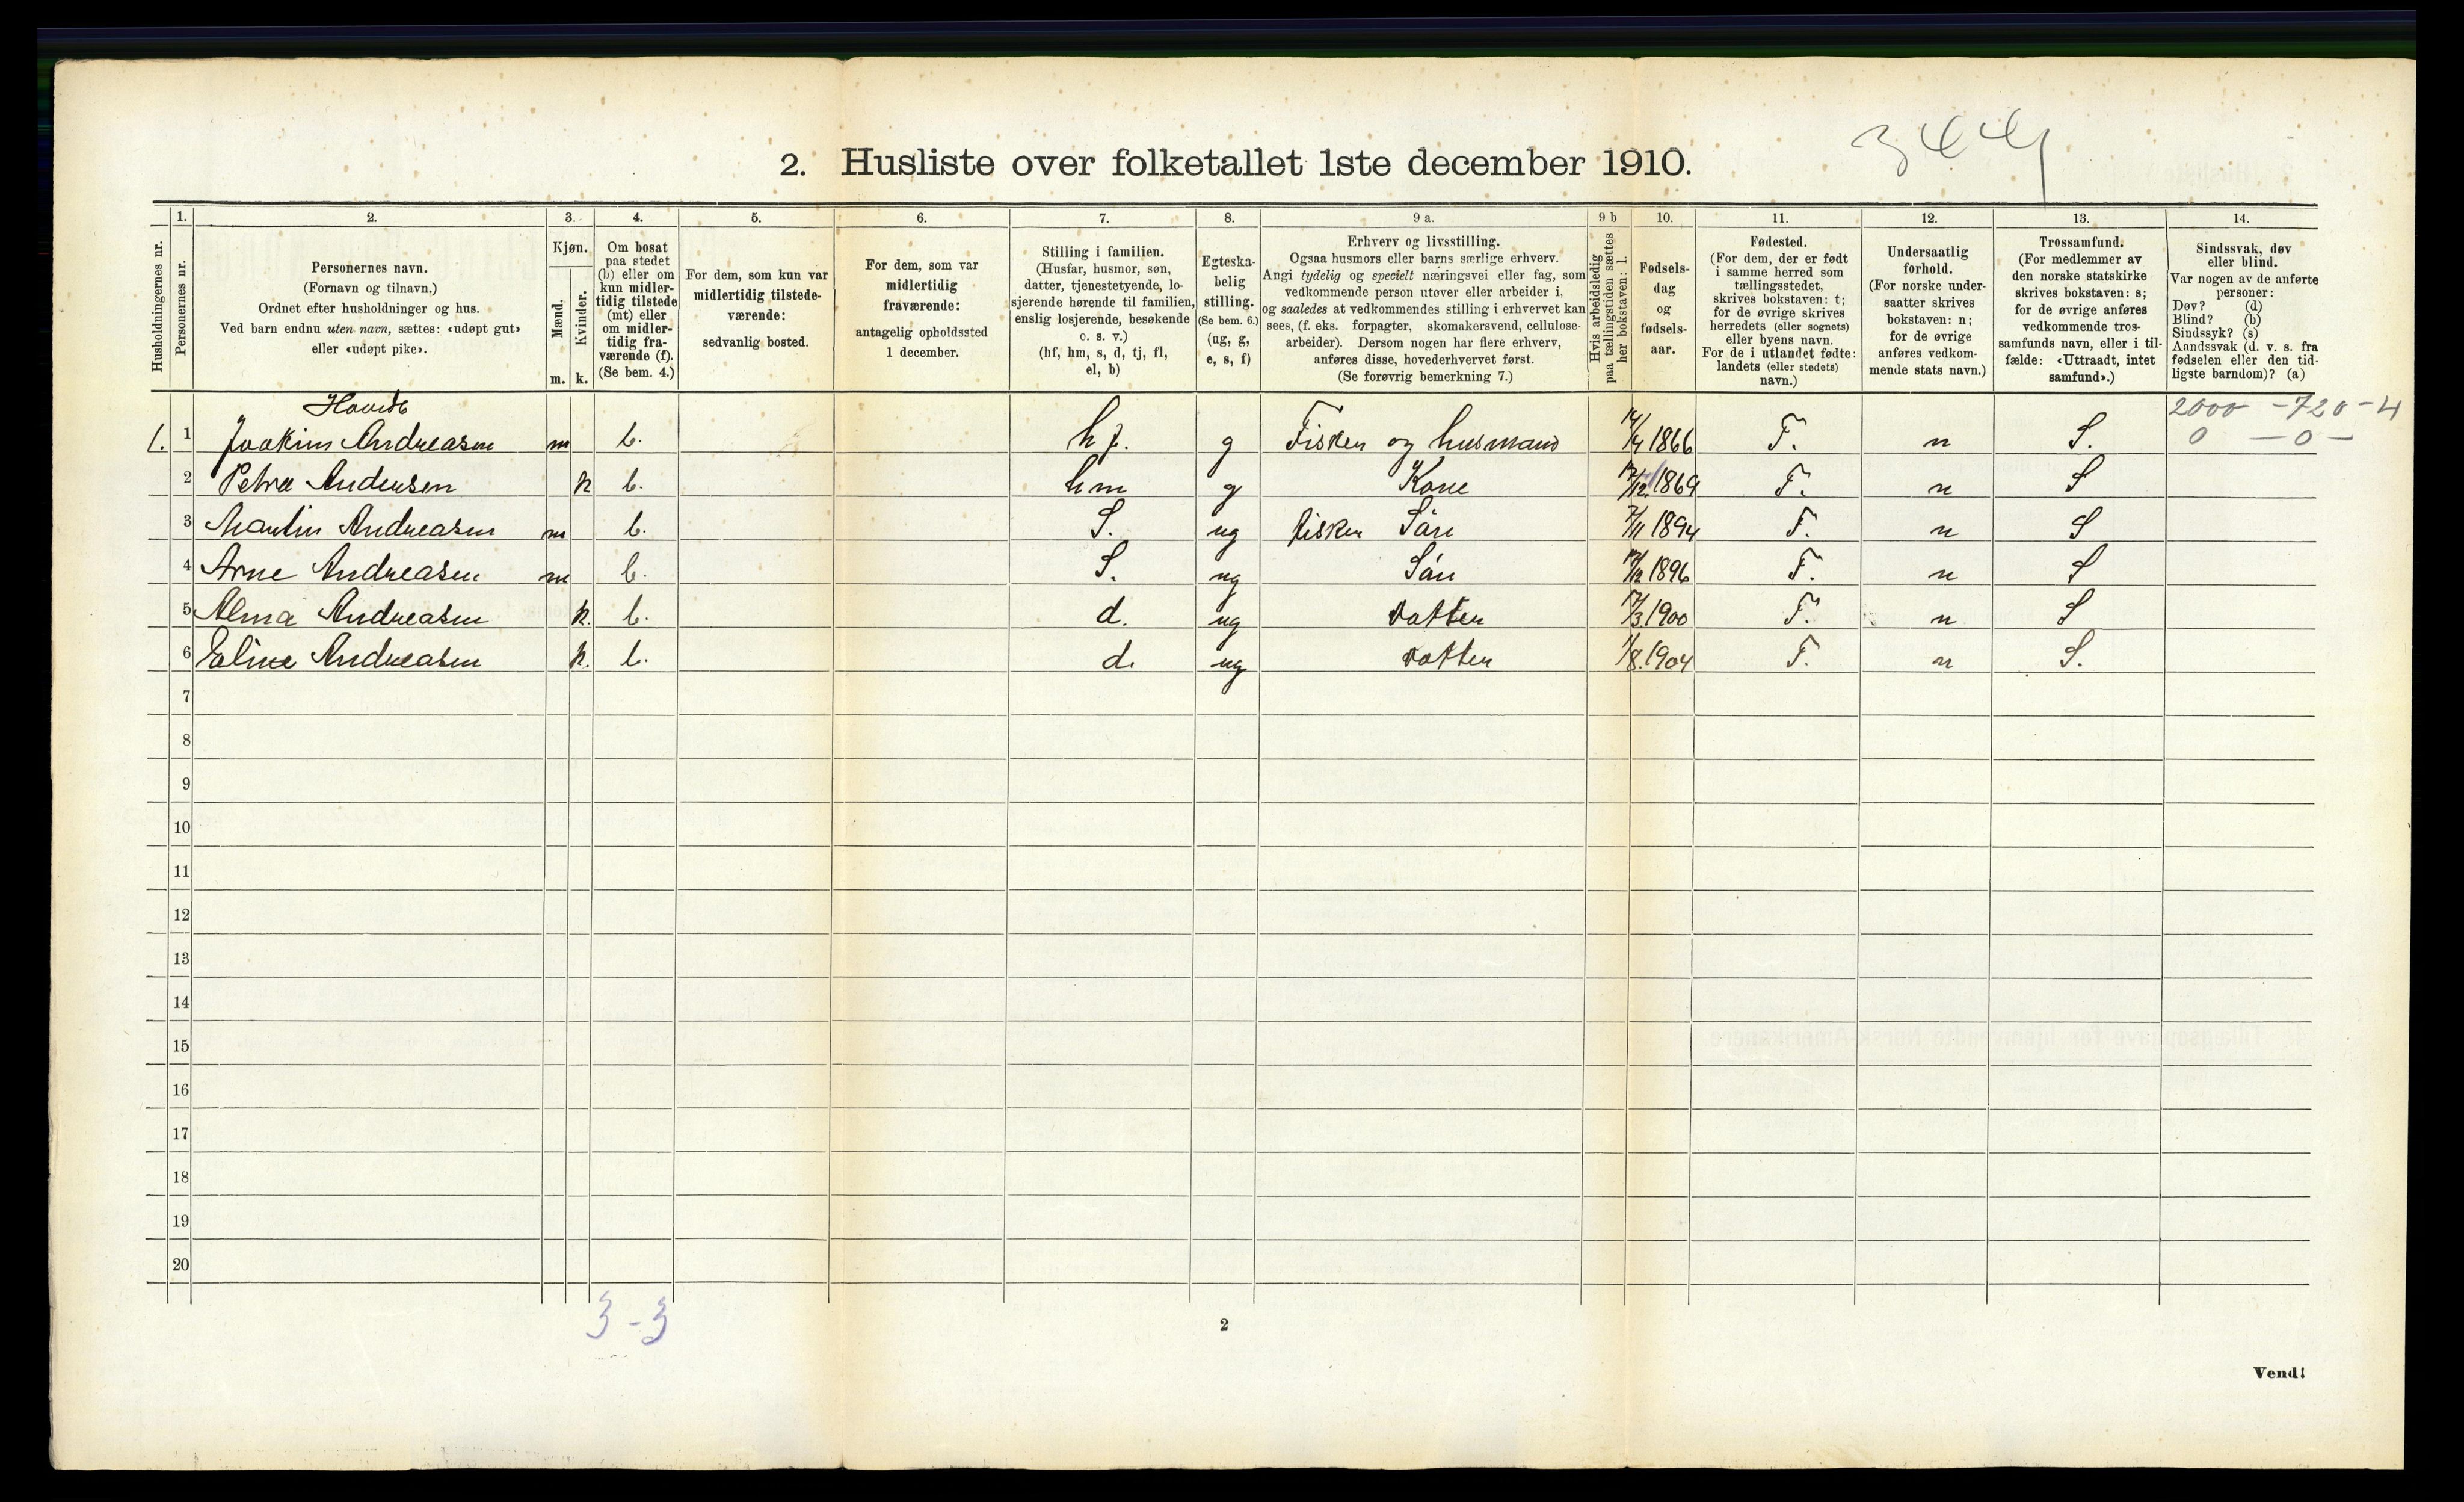 344
2. Husliste over folketallet 1ste december 1910.
Husholdningernes nr.
1. Personernes nr.
2. Personernes navn.
(Fornavn og tilnavn.)
Ordnet efter husholdninger og hus.
Ved barn endnu uten navn, sættes: «udøpt gut»
eller «udøpt pike».
3. Kjøn.
Mænd. m.
Kvinder. k.
4. Om bosat
paa stedet
(b) eller om
kun midler-
tidig tilstede
(mt) eller
om midler-
tidig fra-
værende (f).
(Se bem. 4.)
5. For dem, som kun var
midlertidig tilstede-
værende:
sedvanlig bosted.
6. For dem, som var
midlertidig
fraværende:
antagelig opholdssted
1 december.
7. Stilling i familien.
(Husfar, husmor, søn,
datter, tjenestetyende, lo-
sjerende hørende til familien,
enslig losjerende, besøkende
o. s. v.)
(hf, hm, s, d, tj, fl,
el, b)
8. Egteska-
belig
stilling.
(Se bem. 6.)
(ug, g,
e, s, f)
9 a. Erhverv og livsstilling.
Ogsaa husmors eller barns særlige erhverv.
Angi tydelig og specielt næringsvei eller fag, som
vedkommende person utøver eller arbeider i,
og saaledes at vedkommendes stilling i erhvervet kan
sees, (f. eks. forpagter, skomakersvend, cellulose-
arbeider). Dersom nogen har flere erhverv,
anføres disse, hovederhvervet først.
(Se forøvrig bemerkning 7.)
9 b Hvis arbeidsledig
paa tællingstiden sættes
her bokstaven: l.
10. Fødsels-
dag
og
fødsels-
aar.
11. Fødested.
(For dem, der er født
i samme herred som
tællingsstedet,
skrives bokstaven: t;
for de øvrige skrives
herredets (eller sognets)
eller byens navn.
For de i utlandet fødte:
landets (eller stedets)
navn.)
12. Undersaatlig
forhold.
(For norske under-
saatter skrives
bokstaven: n;
for de øvrige
anføres vedkom-
mende stats navn.)
13. Trossamfund.
(For medlemmer av
den norske statskirke
skrives bokstaven: s;
for de øvrige anføres
vedkommende tros-
samfunds navn, eller i til-
fælde: «Uttraadt, intet
samfund».)
14. Sindssvak, døv
eller blind.
Var nogen av de anførte
personer:
Døv? (d)
Blind? (b)
Sindssyk? (s)
Aandssvak (d. v. s. fra
fødselen eller den tid-
ligste barndom)? (a)
2000 - 720 - 4
1. 1 Joakim Andreasen m b. hf. g Fisker og husmand 14/4 1866 T. n S. 0 - 0 -
2 Petra Andersen k b. hm g Kone 12/12 1869 T. n S
3 Martin Andreasen m b. S. ug fisker Sön 7/11 1894 T. n S
4 Arne Andreasen m b. S. ug Sön 12/12 1896 T. n S
5 Alma Andreasen k. b. d. ug datter 17/3.1900 T. n S
6 Eline Andreasen k. b. d. ug datter 1/8.1904 T. n S.
7
8
9
10
11
12
13
14
15
16
17
18
19
20
3 - 3
2
Vend!